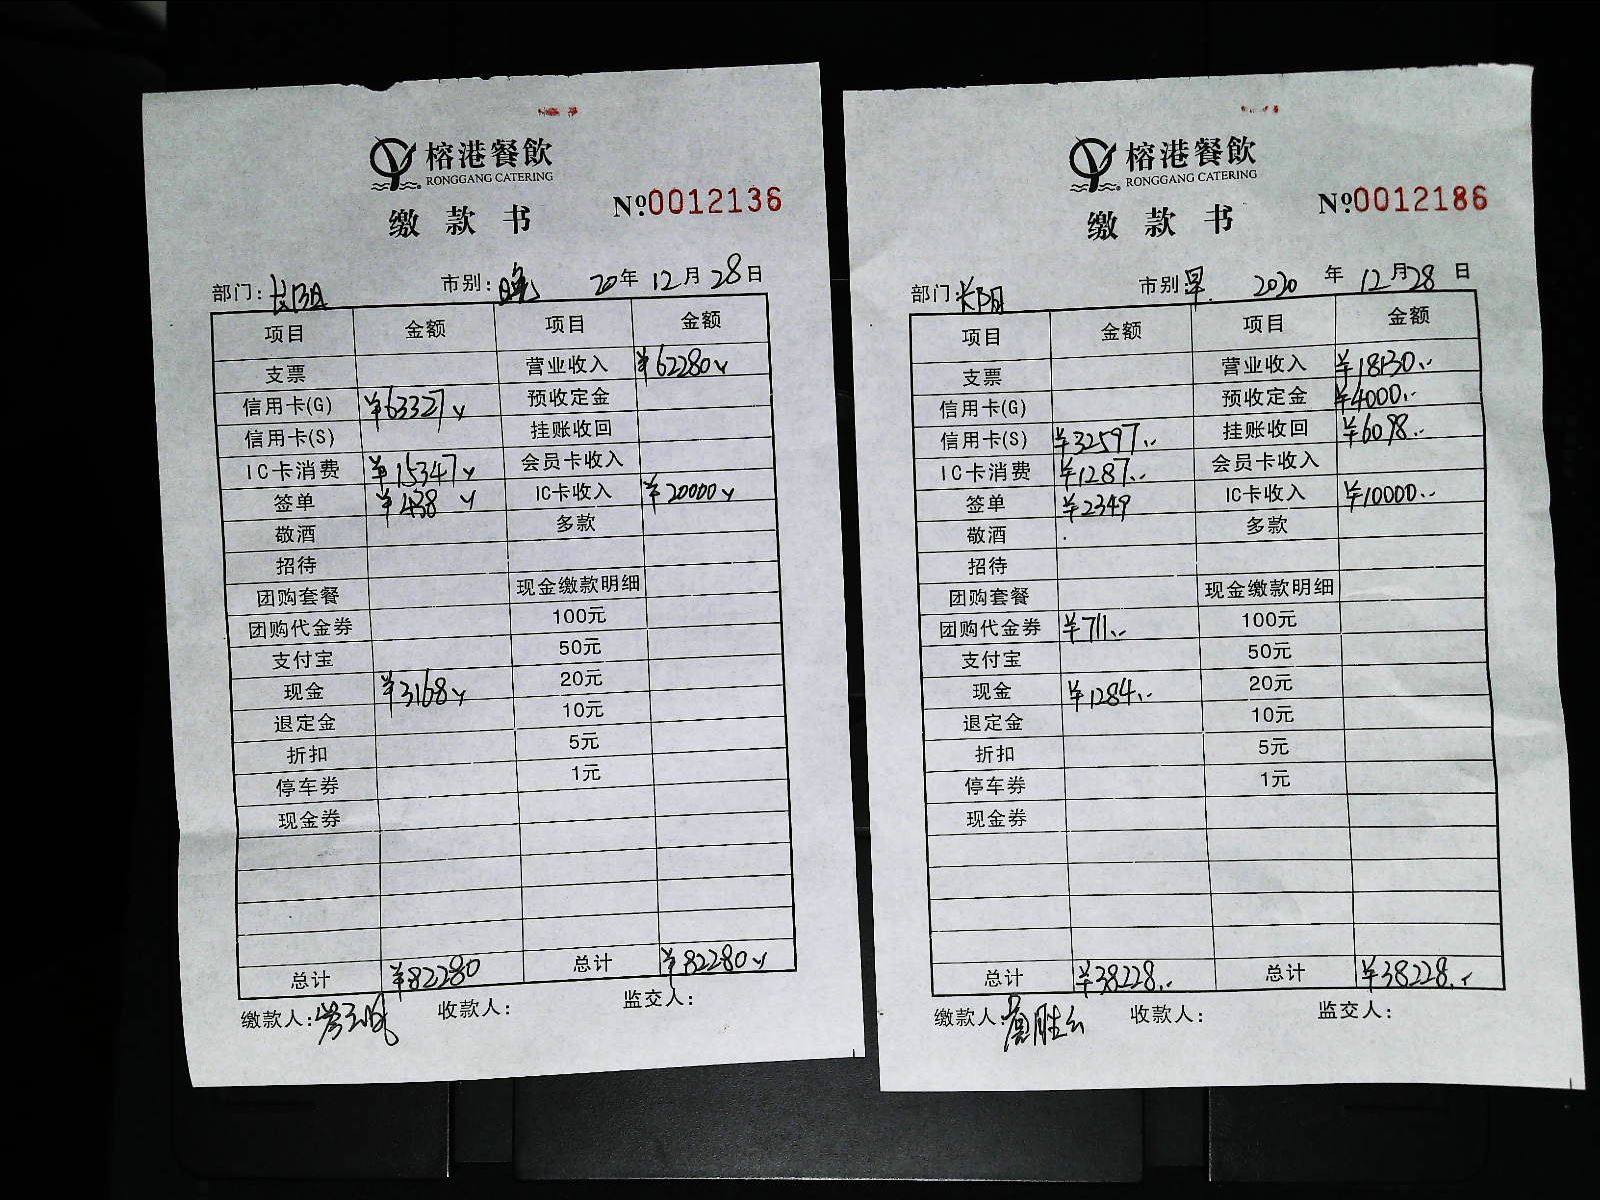 榕港餐飲
RONGGANG CATERING
缴款书
№0012136
部门：长阳 市别：晚 20年12月28日
项目 金额 项目 金额
支票 营业收入 ¥62280
信用卡(G) ¥63327 预收定金
信用卡(S) 挂账收回
IC卡消费 ¥15347 会员卡收入
签单 ¥438 IC卡收入 ¥20000
敬酒 多款
招待
团购套餐 现金缴款明细
团购代金券 100元
支付宝 50元
现金 ¥3168 20元
退定金 10元
折扣 5元
停车券 1元
现金券
总计 ¥82280 总计 ¥82280
缴款人： 收款人： 监交人：
榕港餐飲
RONGGANG CATERING
缴款书
№0012186
部门：长阳 市别：早 2020年12月28日
项目 金额 项目 金额
支票 营业收入 ¥18130
信用卡(G) 预收定金 ¥4000
信用卡(S) ¥32597 挂账收回 ¥6098
IC卡消费 ¥1287 会员卡收入
签单 ¥2349 IC卡收入 ¥10000
敬酒 多款
招待
团购套餐 现金缴款明细
团购代金券 ¥711 100元
支付宝 50元
现金 ¥1284 20元
退定金 10元
折扣 5元
停车券 1元
现金券
总计 ¥38228 总计 ¥38228
缴款人： 收款人： 监交人：